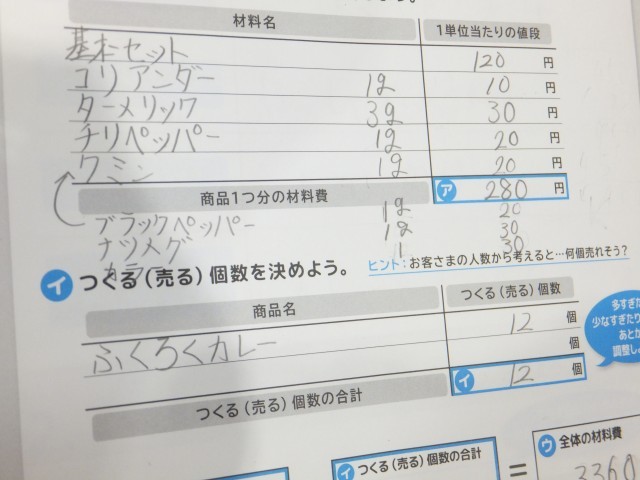 材料名 1単位当たりの値段
基本セット 120 円
コリアンダー 1g 10 円
ターメリック 3g 30 円
チリペッパー 1g 20 円
クミン 1g 20 円
商品1つ分の材料費 ア 280 円
ブラックペッパー 1g 20
ナツメグ 1g 30
1 30
イ つくる(売る)個数を決めよう。 ヒント:お客さまの人数から考えると…何個売れそう?
商品名 つくる(売る)個数
ふくろくカレー 12 個
個
つくる(売る)個数の合計 イ 12 個
多すぎた
少なすぎたり
あとか
調整し
イ つくる(売る)個数の合計 = ウ 全体の材料費
3360